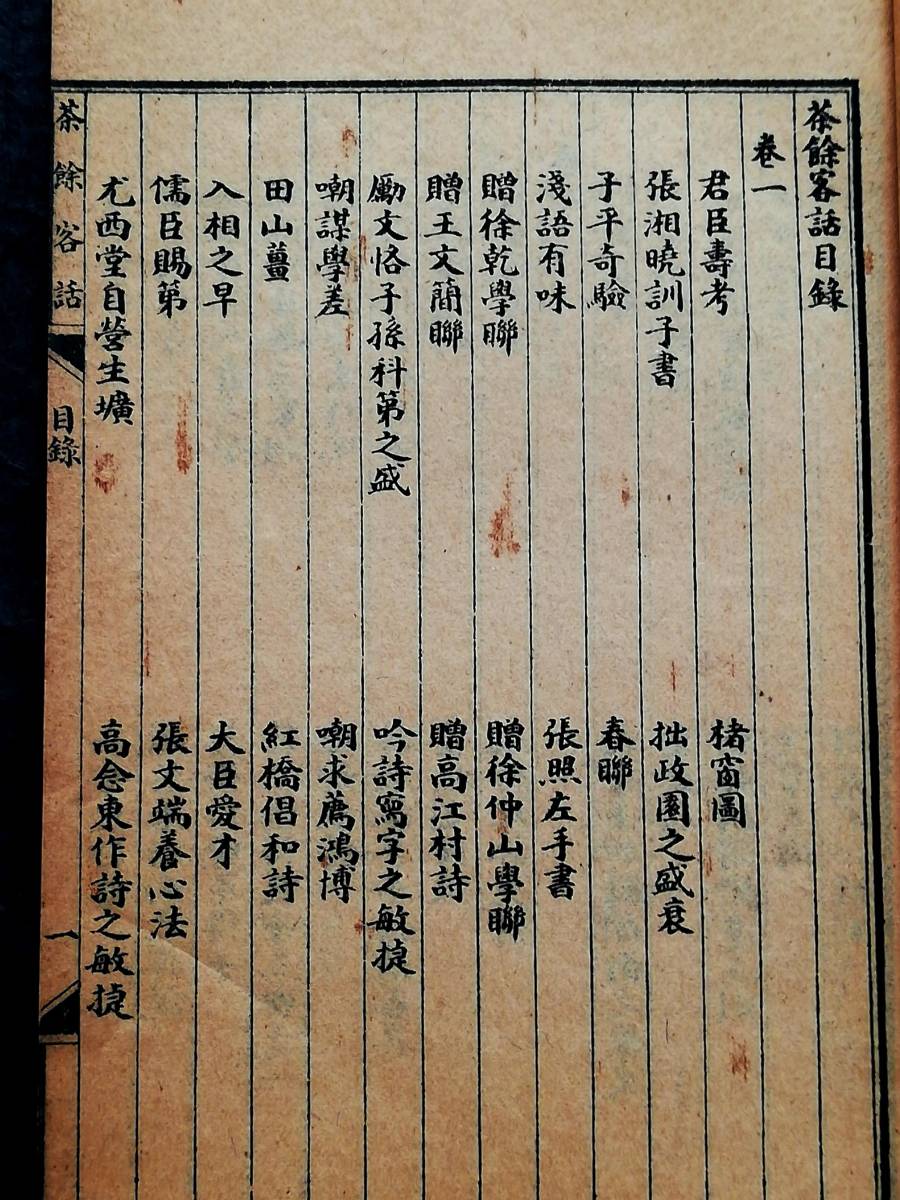 茶餘客話目錄
卷一
君臣壽考　楮窗圖
張湘曉訓子書　拙政園之盛衰
子平奇驗　春聯
淺語有味　張照左手書
贈徐乾學聯　贈徐仲山學聯
贈王文簡聯　贈高江村詩
勵文恪子孫科第之盛　吟詩寫字之敏捷
嘲謀學差　嘲求薦鴻博
田山薑　紅橋倡和詩
入相之早　大臣愛才
儒臣賜第　張文端養心法
尤西堂自營生壙　高念東作詩之敏捷
茶餘客話　目錄　一